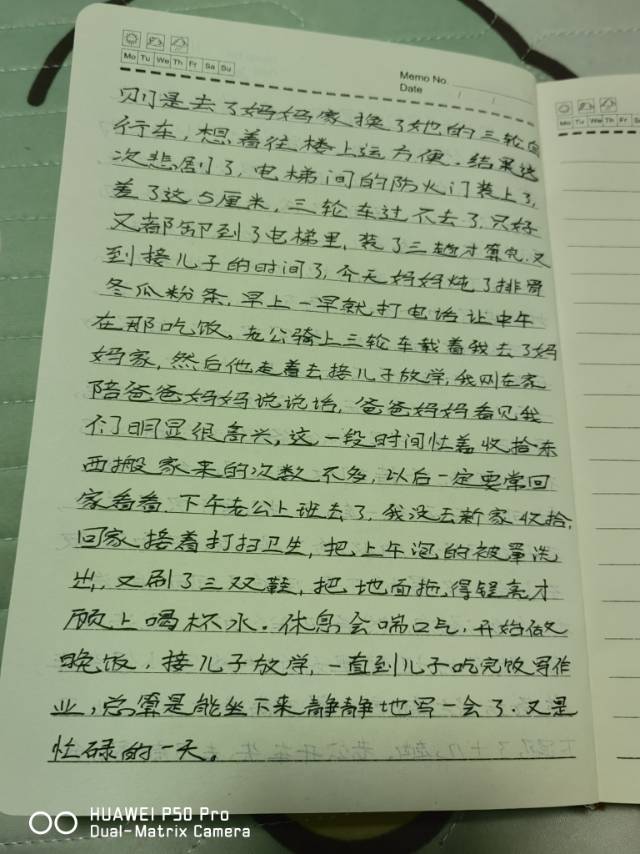 Mo Tu We Th Fr Sa Su
Memo No.
Date / /
Mo Tu We Th Fr Sa
则是去了妈妈家换了她的三轮自
行车,想着往楼上运方便。结果这
次悲剧了,电梯间的防火门装上了,
差了这5厘米,三轮车过不去了,只好
又都卸到了电梯里,装了三趟才算完,又
到接儿子的时间了,今天妈妈炖了排骨
冬瓜粉条,早上一早就打电话让中午
在那吃饭。老公骑上三轮车载着我去了妈
妈家,然后他走着去接儿子放学,我则在家
陪爸爸妈妈说说话,爸爸妈妈看见我
们明显很高兴,这一段时间忙着收拾东
西搬家来的次数不多,以后一定要常回
家看看。下午老公上班去了,我没去新家收拾,
回家接着打扫卫生,把上午泡的被罩洗
出,又刷了三双鞋,把地面拖得锃亮才
顾上喝杯水。休息会喘口气,开始做
晚饭,接儿子放学,一直到儿子吃完饭写作
业,总算是能坐下来静静地写一会了。又是
忙碌的一天。
HUAWEI P50 Pro
Dual-Matrix Camera